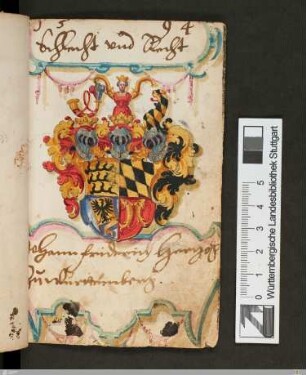 1 5 9 4
Schlecht und Recht
Johann Friderich Hertzog
Zu Württemberg.
Württembergische Landesbibliothek Stuttgart
0 1 2 3 4 5